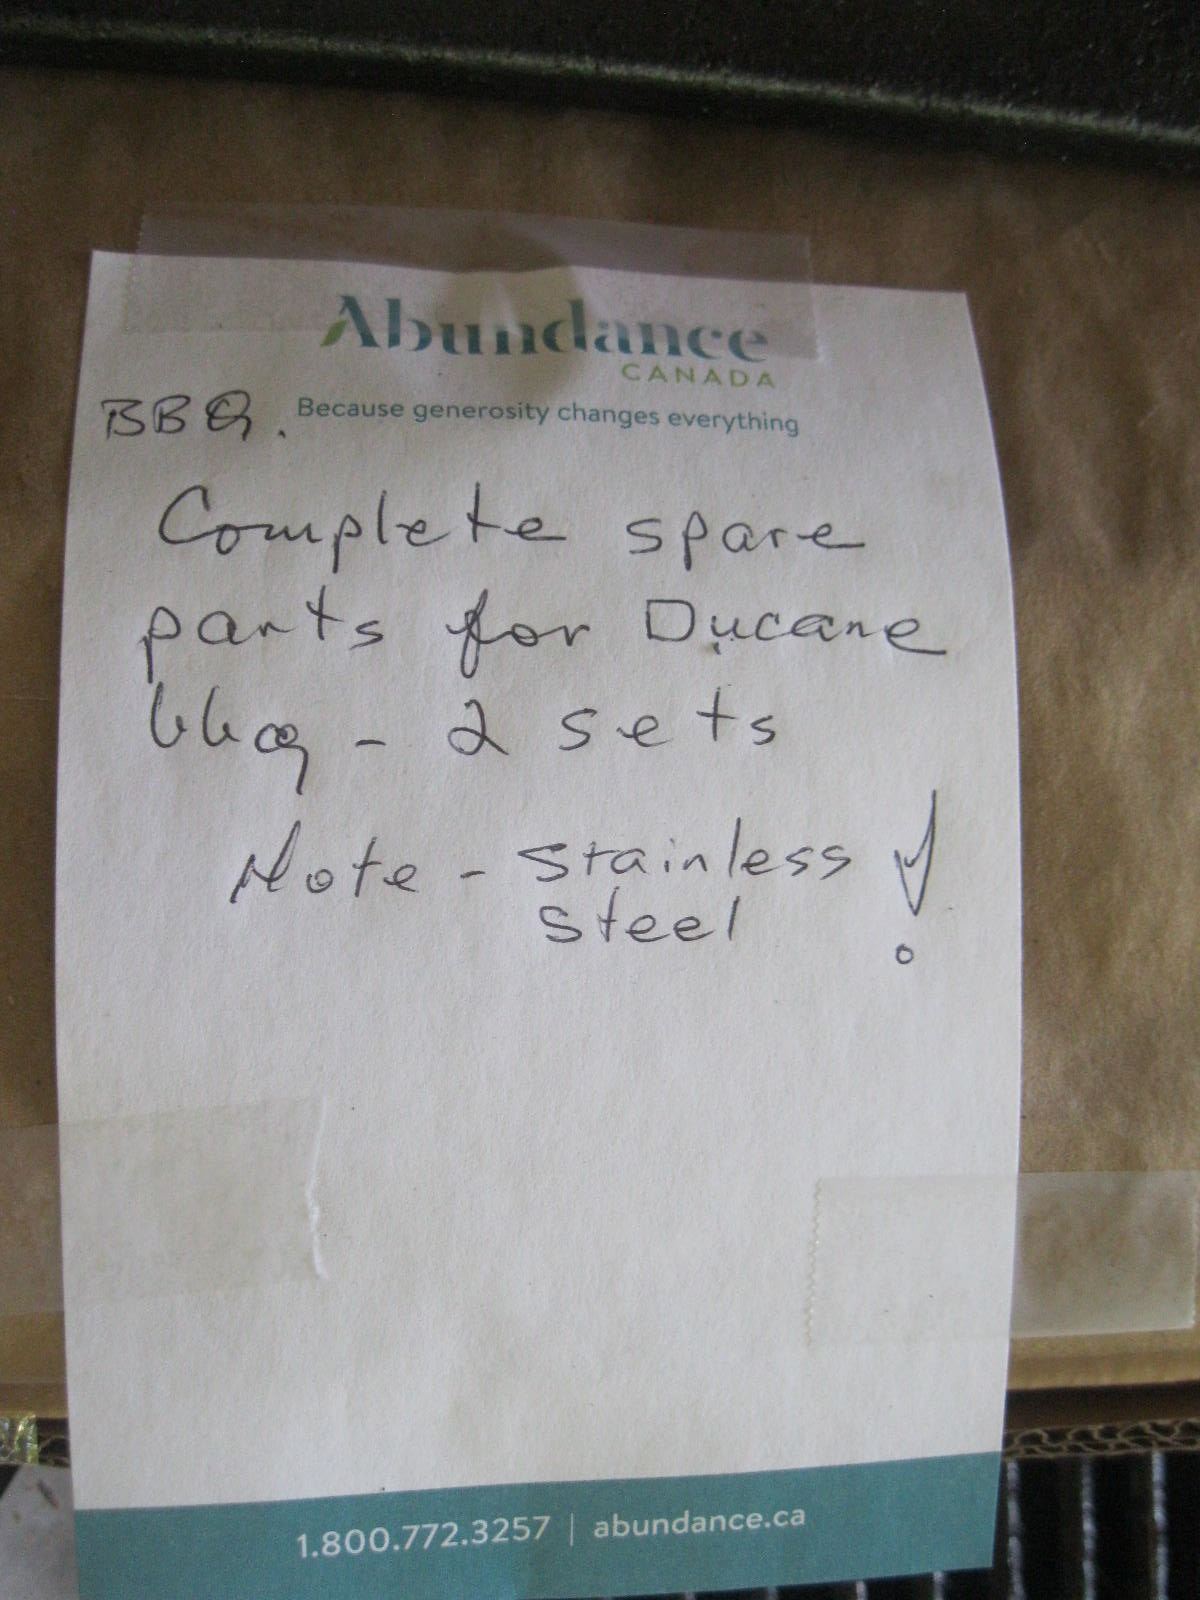 Abundance
CANADA
BBQ. Because generosity changes everything
Complete spare
parts for Ducane
bbq - 2 sets
Note - Stainless !
Steel
1.800.772.3257 | abundance.ca